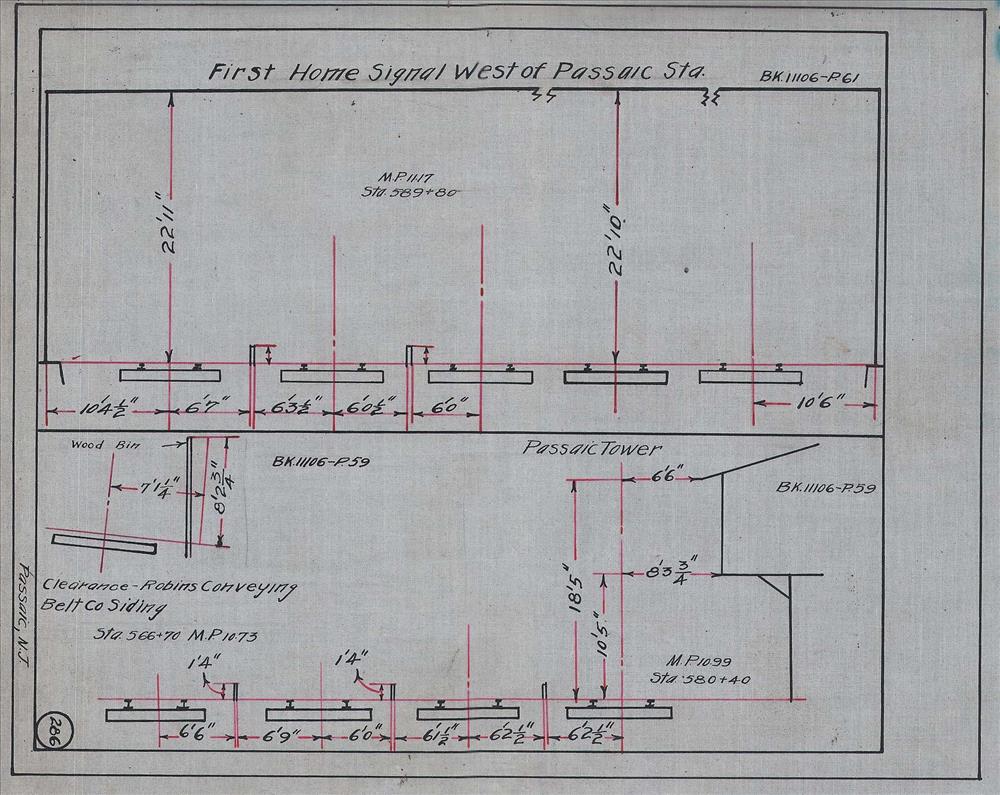 First Home Signal West of Passaic Sta.
BK.11106-P.61
M.P.11.17
Sta. 589+80
22'11"
22'10"
10'4½"
6'7"
6'3½"
6'0½"
6'0"
10'6"
Wood Bin
BK.11106-P.59
7'1¼"
8'2¾"
Clearance - Robins Conveying
Belt Co Siding
Sta. 566+70 M.P.10.73
Passaic Tower
BK.11106-P.59
6'6"
8'3¾"
18'5"
10'5"
M.P.10.99
Sta. 580+40
1'4"
1'4"
6'6"
6'9"
6'0"
6'1½"
6'2½"
6'2½"
Passaic, N.J.
286